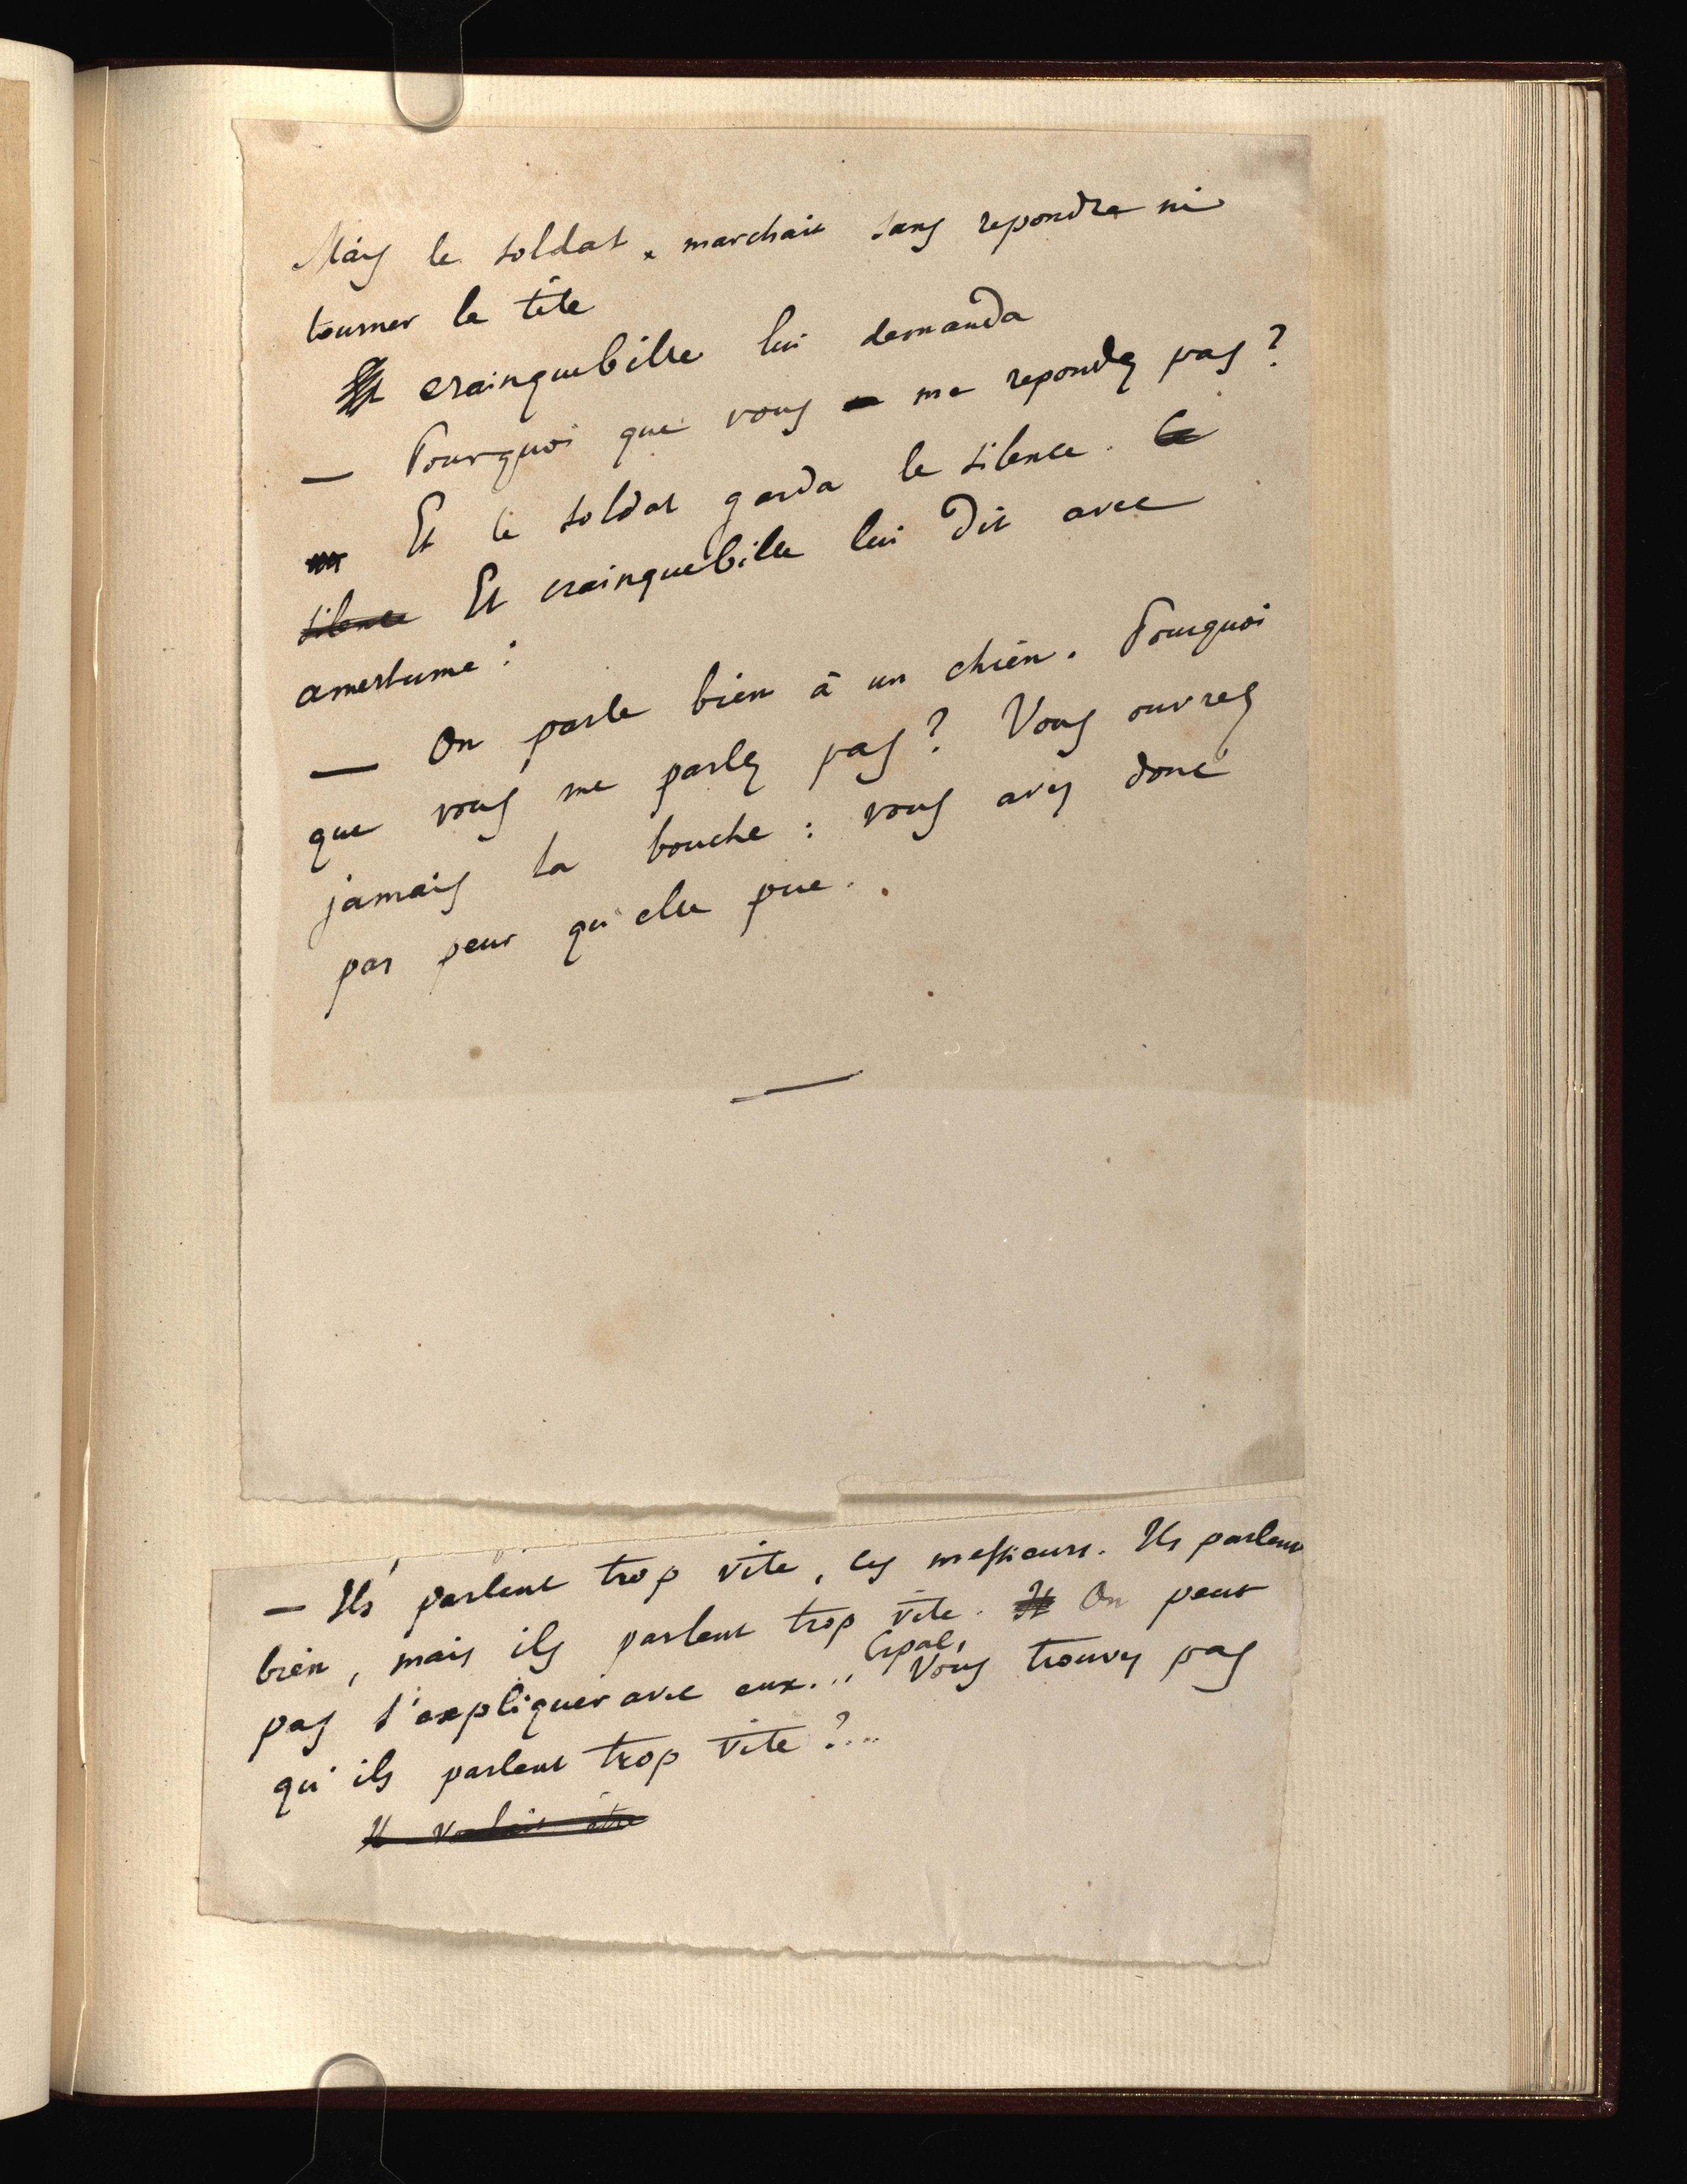 Mais le soldat, marchait sans repondre ni
tourner la tête
crainquebille lui demanda
— Pourquoi que vous me repondez pas ?
Et le soldat garda le silence. Le
silence Et crainquebille lui dit avec
amertume :
— On parle bien à un chien. Pourquoi
que vous me parlez pas ? Vous ouvrez
jamais la bouche : vous avez donc
pas peur qu'elle pue.
— Ils parlent trop vite, ces messieurs. Ils parlent
bien, mais ils parlent trop vite. Il On peut
pas s'expliquer avec eux... Cipal, Vous trouvez pas
qu'ils parlent trop vite ?...
Il voulait être